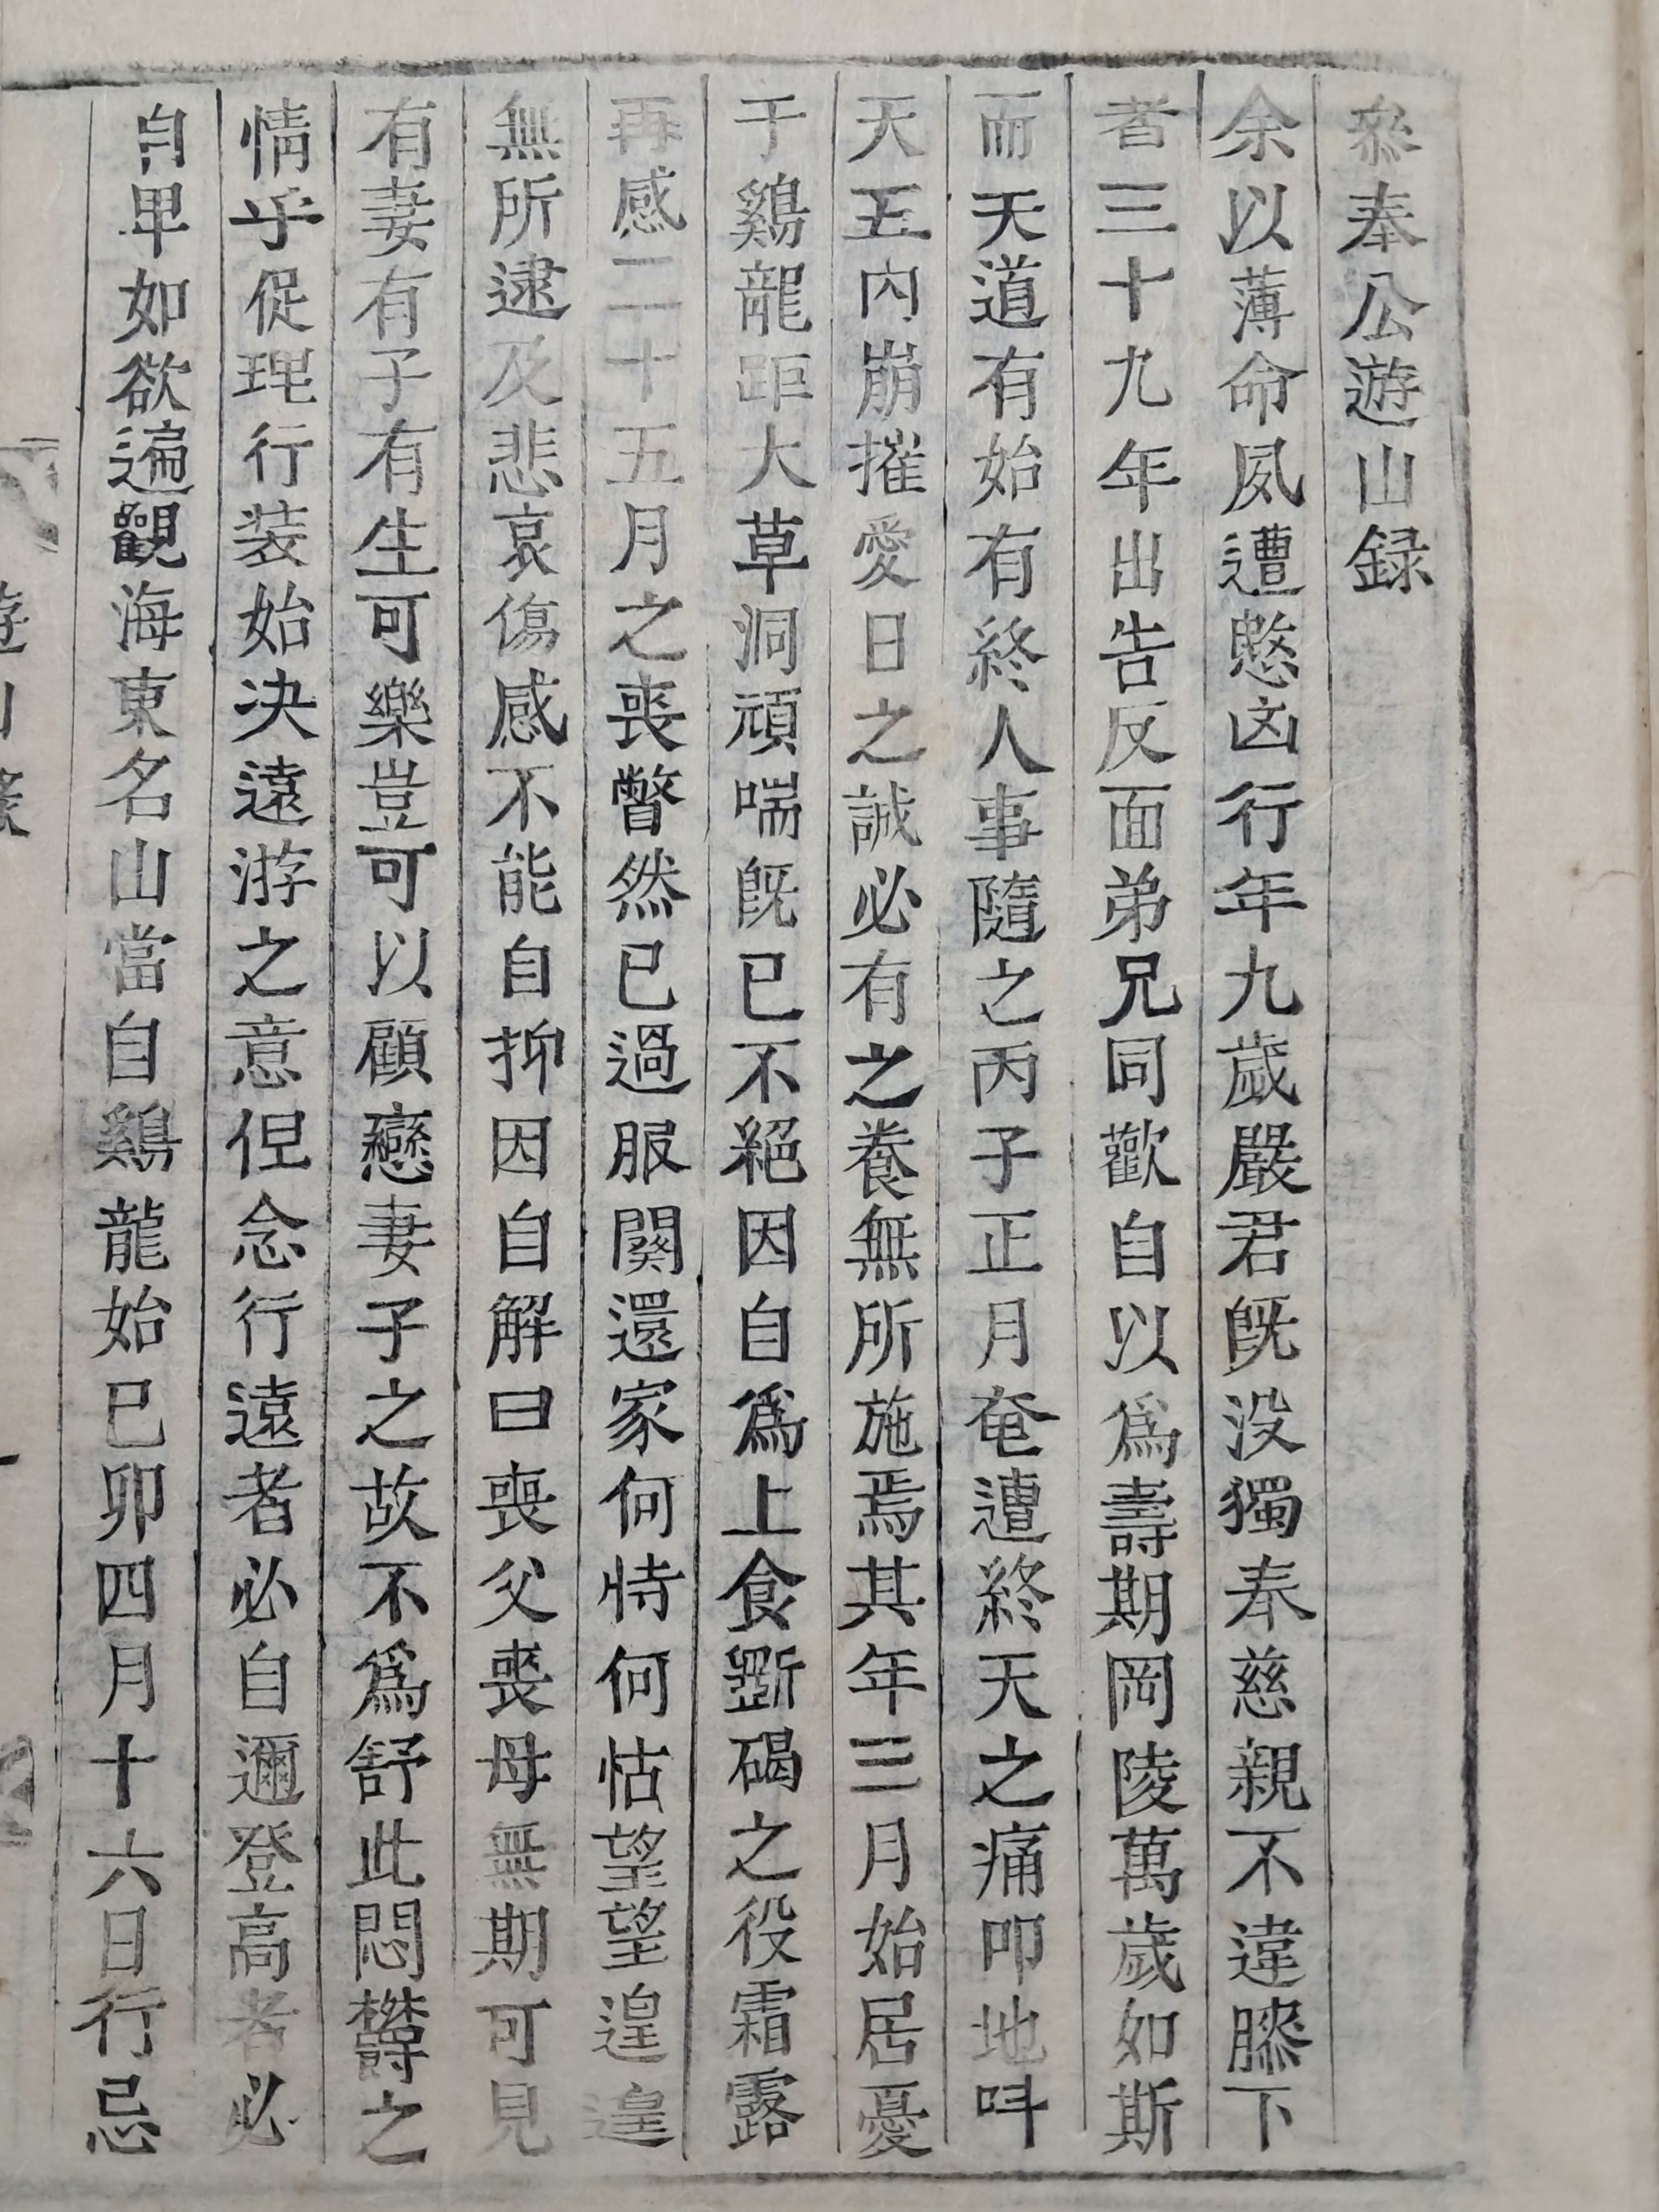 叅奉公遊山録
余以薄命夙遭愍凶行年九歲嚴君旣没獨奉慈親不違膝下
者三十九年出告反面弟兄同歡自以爲壽期岡陵萬歲如斯
而天道有始有終人事隨之丙子正月奄遭終天之痛叩地呌
天五內崩摧愛日之誠必有之養無所施焉其年三月始居憂
于鷄龍距大草洞頑喘旣已不絕因自爲上食斲碣之役霜露
再感二十五月之喪瞥然已過服闋還家何恃何怙望望遑遑
無所逮及悲哀傷感不能自抑因自解曰喪父喪母無期可見
有妻有子有生可樂豈可以顧戀妻子之故不爲舒此悶欝之
情乎促理行装始决遠游之意但念行遠者必自邇登高者必
自卑如欲遍觀海東名山當自鷄龍始已卯四月十六日行忌